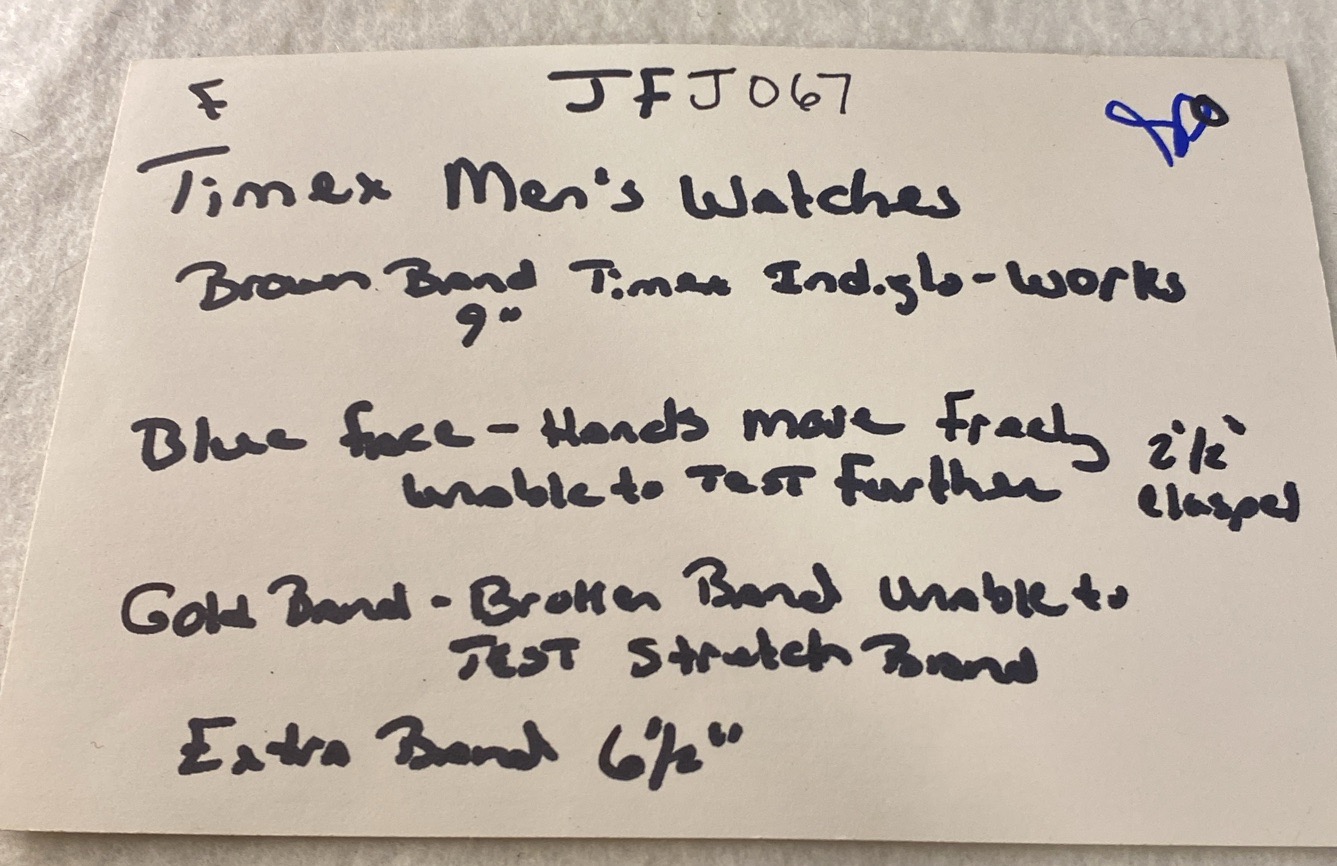 F JFJ067
Timex Men's Watches
Brown Band Timex Indiglo-Works
9"
Blue face - Hands move Freely 2 1/2"
unable to TEST further clasped
Gold Band - Broken Band unable to
TEST Stretch Band
Extra Band 6 1/2"